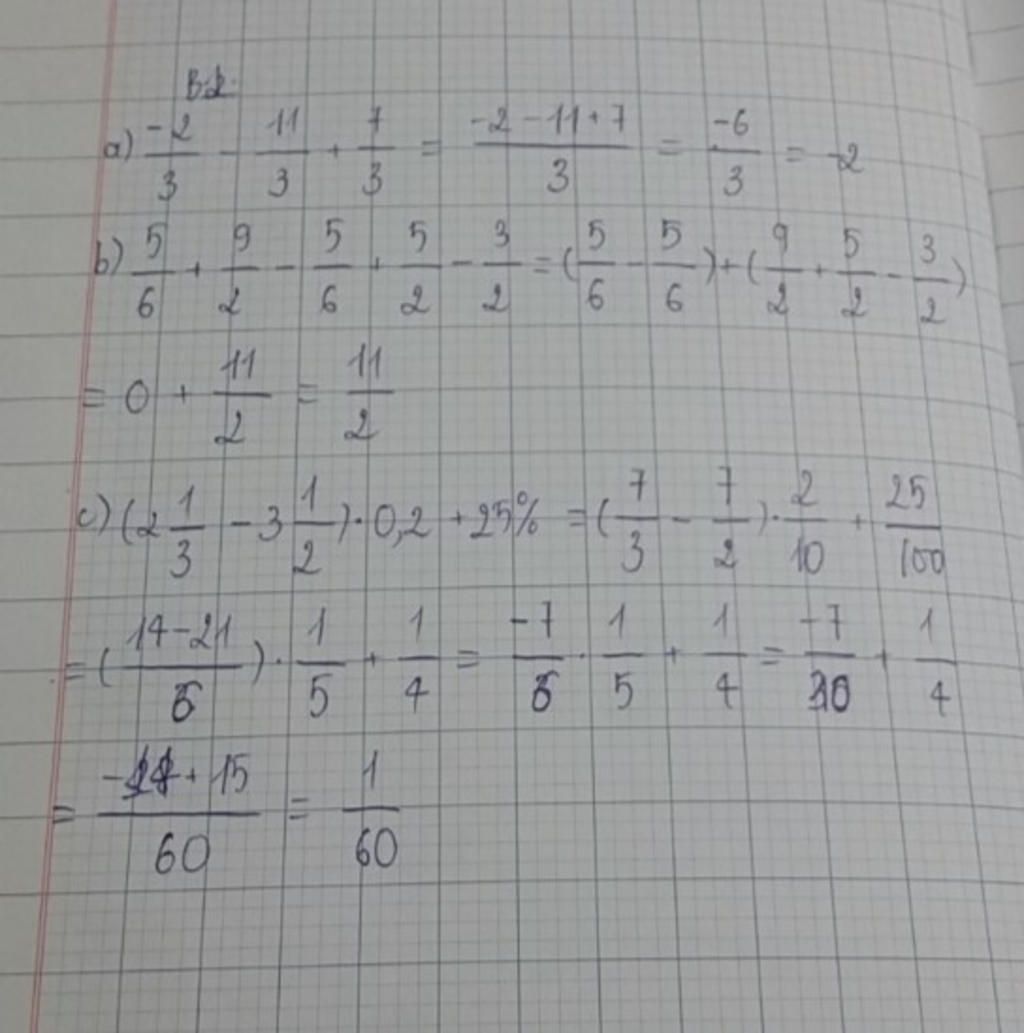 B2.
a) -2/3 - 11/3 + 7/3 = (-2-11+7)/3 = -6/3 = -2
b) 5/6 + 9/2 - 5/6 + 5/2 - 3/2 = (5/6 - 5/6) + (9/2 + 5/2 - 3/2)
= 0 + 11/2 = 11/2
c) (2 1/3 - 3 1/2) · 0,2 + 25% = (7/3 - 7/2) · 2/10 + 25/100
= ((14-21)/6) · 1/5 + 1/4 = -7/6 · 1/5 + 1/4 = -7/30 + 1/4
= (-14+15)/60 = 1/60